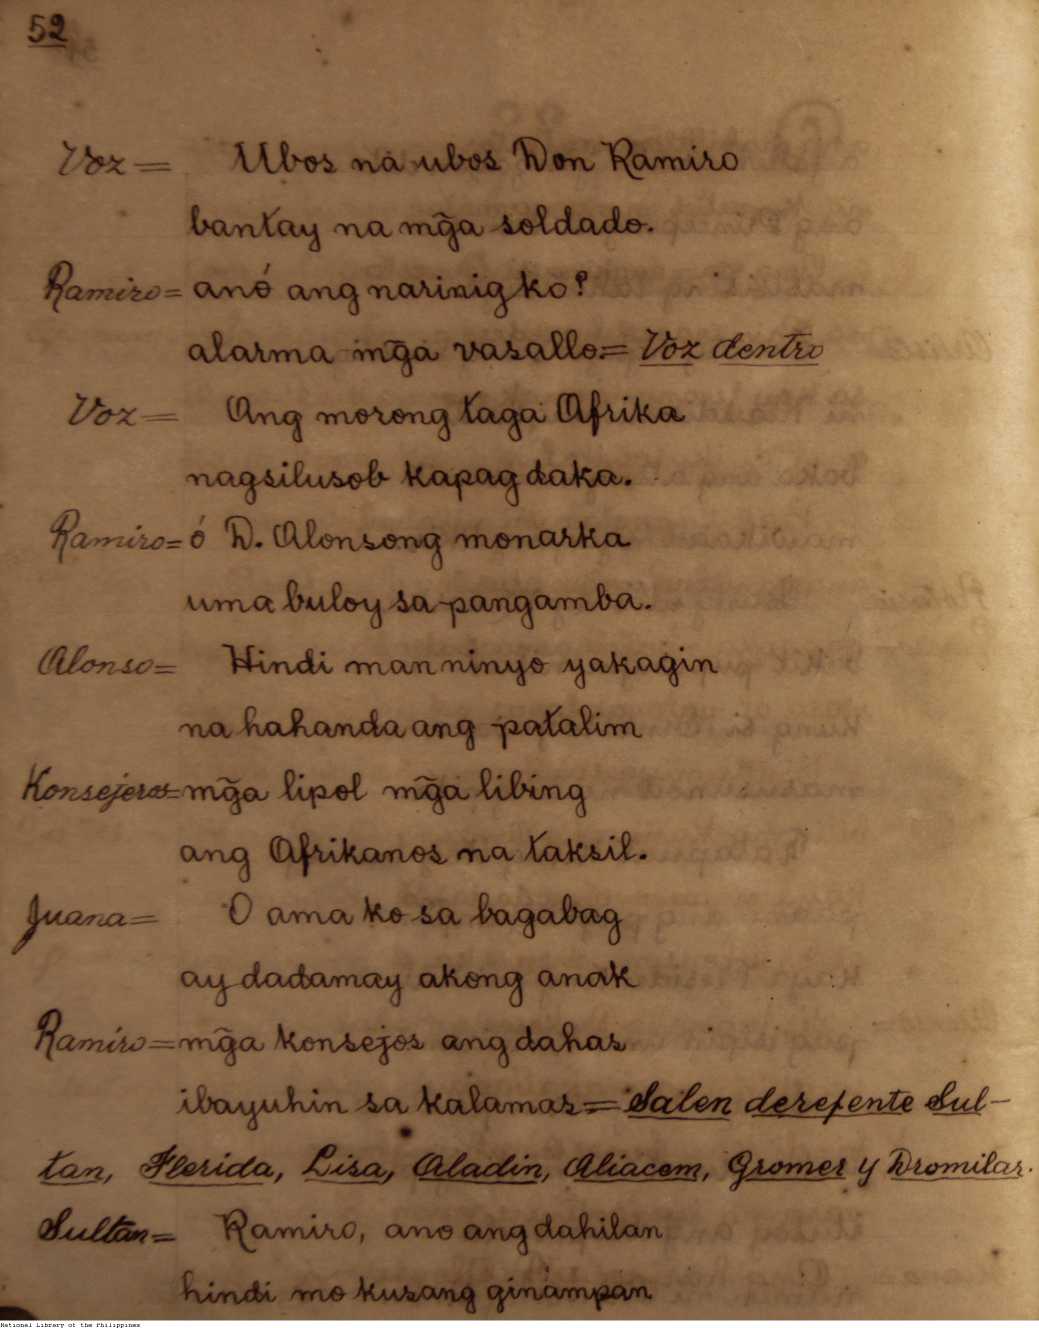 52
Voz = Ubos na ubos Don Ramiro
bantay na mg̃a soldado.
Ramiro = anó ang narinig ko?
alarma mg̃a vasallo.= Voz dentro
Voz = Ang morong taga Afrika
nagsilusob kapag daka.
Ramiro = ó D. Alonsong monarka
uma buloy sa pangamba.
Alonso = Hindi man ninyo yakagin
na hahanda ang patalim
Konsejeros = mg̃a lipol mg̃a libing
ang Afrikanos na taksil.
Juana = O ama ko sa bagabag
ay dadamay akong anak
Ramiro = mg̃a konsejos ang dahas
ibayuhin sa kalamas = Salen derepente Sul-
tan, Flerida, Lisa, Aladin, Aliacem, Gromer y Dromilar.
Sultan = Ramiro, ano ang dahilan
hindi mo kusang ginampan
National Library of the Philippines